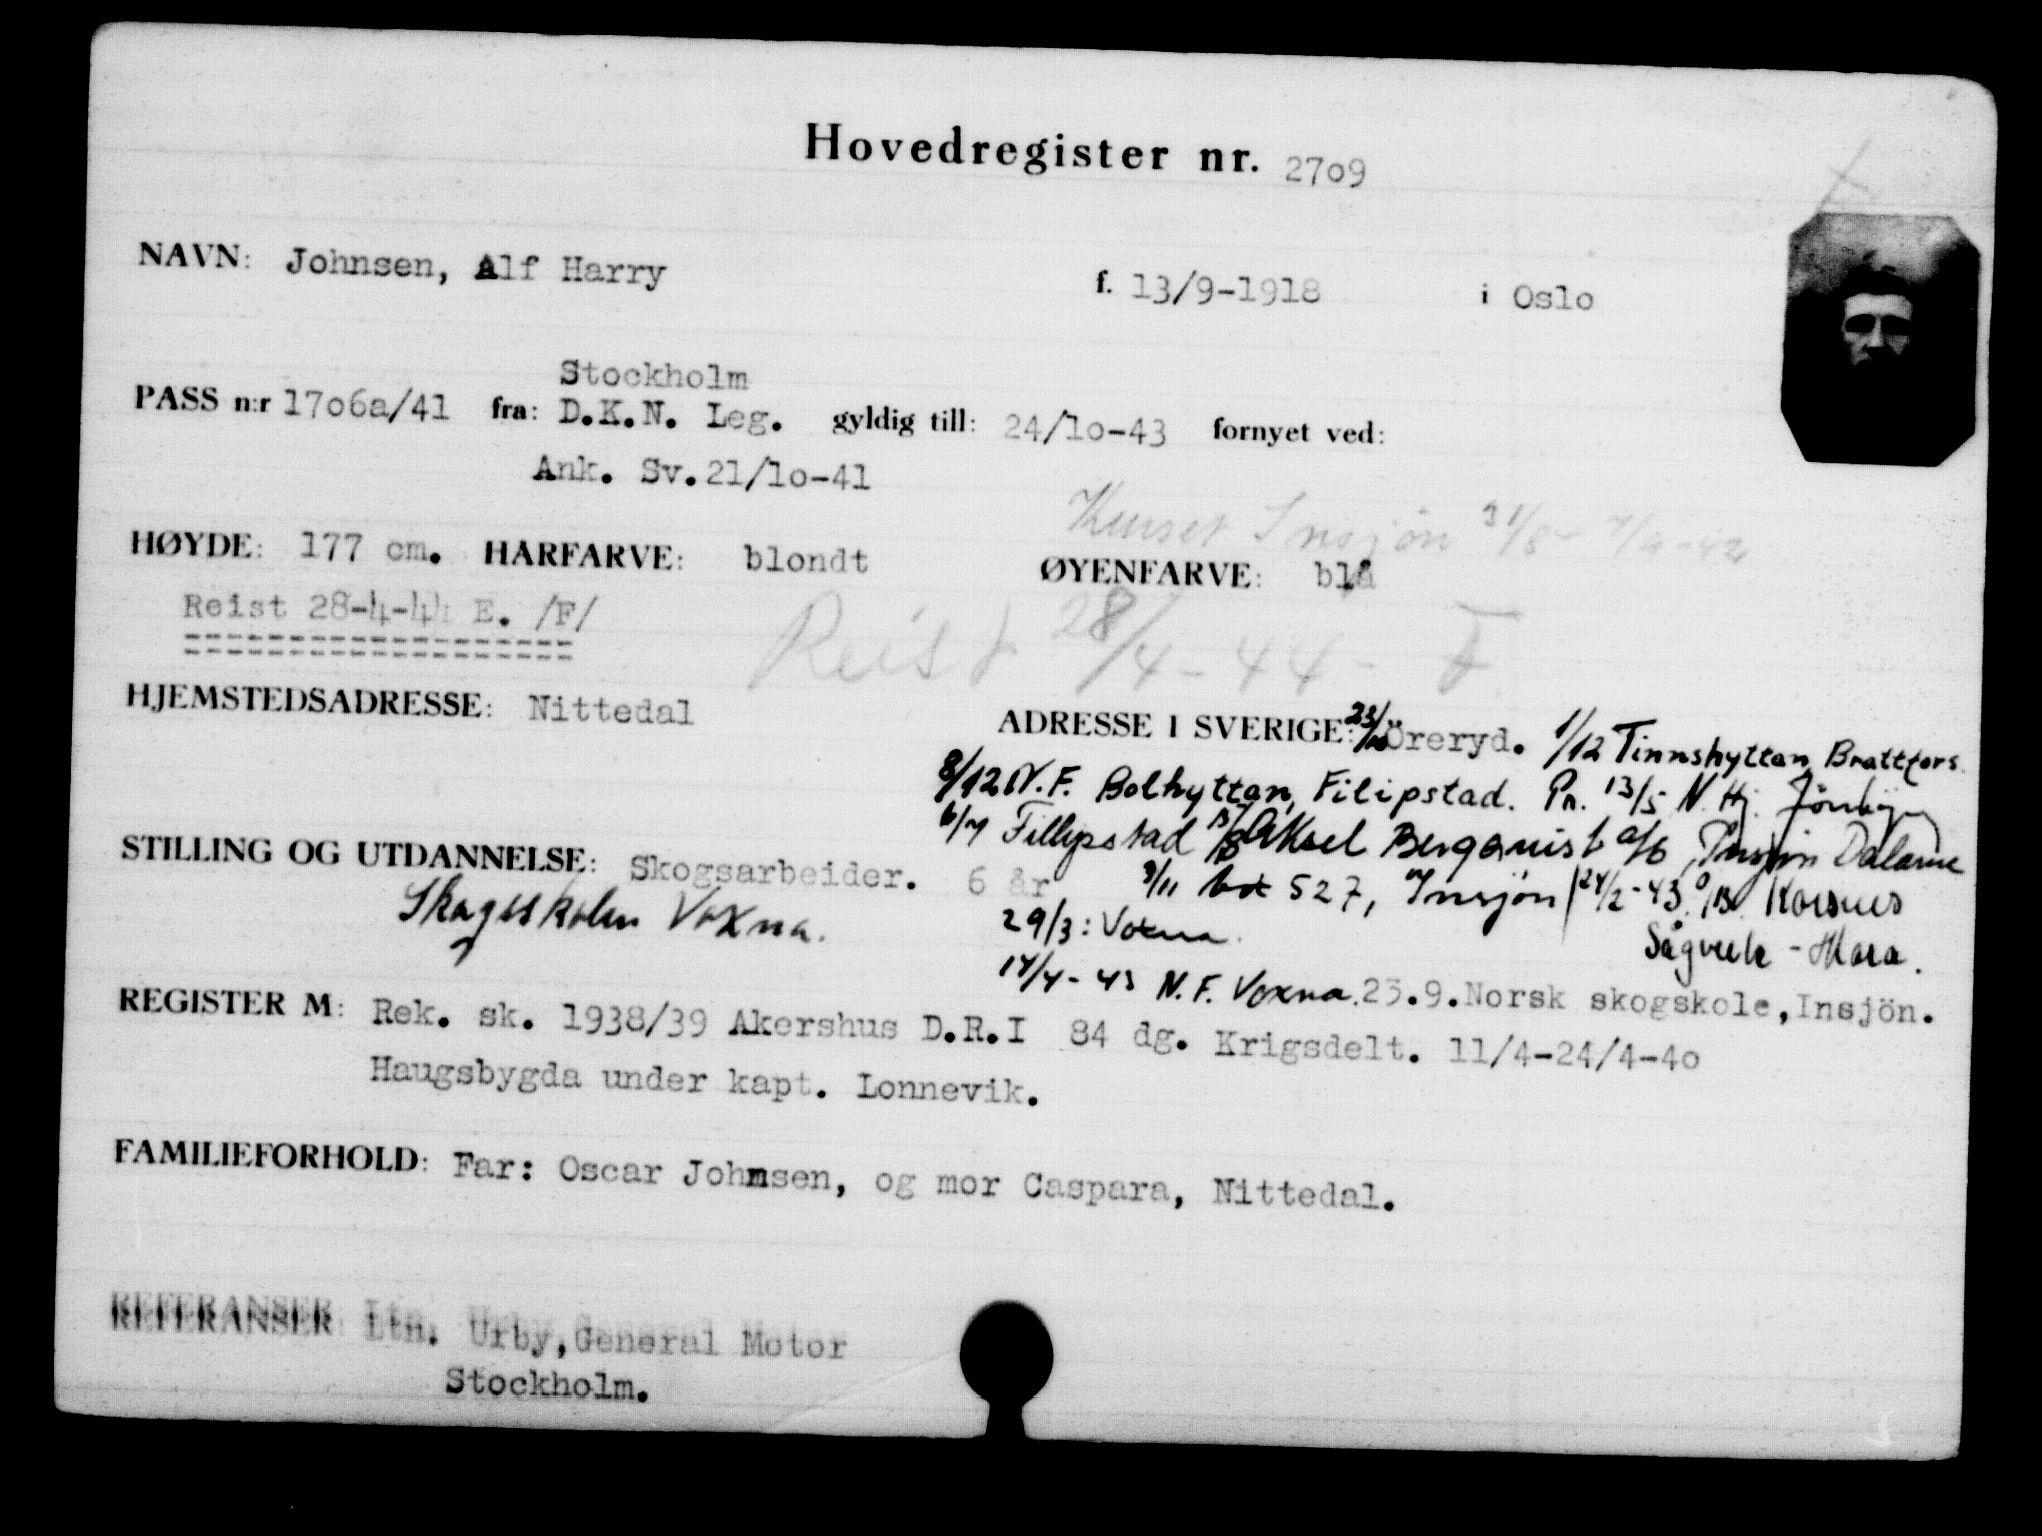 Hovedregister nr. 27o9
NAVN: Johnsen, Alf Harry f. 13/9-1918 i Oslo
Stockholm
PASS n:r 17o6a/41 fra: D.K.N. Leg. gyldig till: 24/1o-43 fornyet ved:
Ank. Sv. 21/1o-41
Kurset Insjön 31/8-
HØYDE: 177 cm. HARFARVE: blondt ØYENFARVE: blå
Reist 28-4-44 E. /F/
Reist 28/4-44- F
HJEMSTEDSADRESSE: Nittedal
ADRESSE I SVERIGE: Öreryd. 1/12 Tinnshyttan, Brattfors.
8/12 N.F. Bolhyttan, Filipstad. Pn. 13/5 N. Hj.
6/7 Fillipstad Aksel Berqquist Dalarne
STILLING OG UTDANNELSE: Skogsarbeider. 6 år
9/11 box 527, Insjön 24/2-43. Korsnes
Skogsskolen Voxna.
29/3: Voxna.
Sågverk - Mora.
14/4-43 N.F. Voxna. 23.9. Norsk skogskole, Insjön.
REGISTER M: Rek. sk. 1938/39 Akershus D.R.I 84 dg. Krigsdelt. 11/4-24/4-4o
Haugsbygda under kapt. Lonnevik.
FAMILIEFORHOLD: Far: Oscar Johnsen, og mor Caspara, Nittedal.
REFERANSER Ltn. Urby, General Motor
Stockholm.